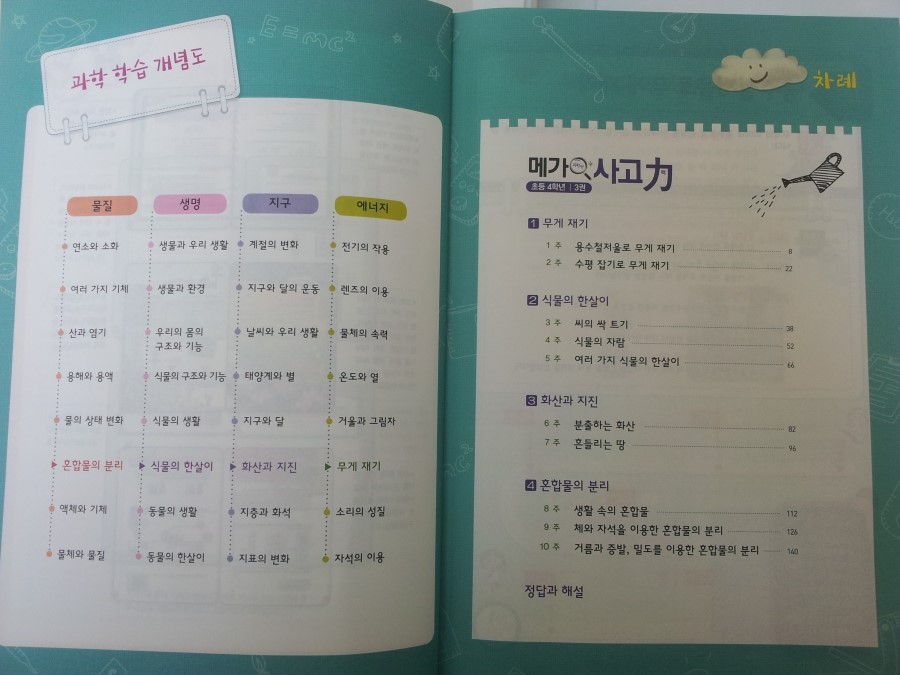 E=mc²
과학 학습 개념도
물질
연소와 소화
여러 가지 기체
산과 염기
용해와 용액
물의 상태 변화
혼합물의 분리
액체와 기체
물체와 물질
생명
생물과 우리 생활
생물과 환경
우리의 몸의
구조와 기능
식물의 구조와 기능
식물의 생활
식물의 한살이
동물의 생활
동물의 한살이
지구
계절의 변화
지구와 달의 운동
날씨와 우리 생활
태양계와 별
지구와 달
화산과 지진
지층과 화석
지표의 변화
에너지
전기의 작용
렌즈의 이용
물체의 속력
온도와 열
거울과 그림자
무게 재기
소리의 성질
자석의 이용
차례
메가 사고力
초등 4학년 | 3권
1 무게 재기
1 주 용수철저울로 무게 재기 8
2 주 수평 잡기로 무게 재기 22
2 식물의 한살이
3 주 씨의 싹 트기 38
4 주 식물의 자람 52
5 주 여러 가지 식물의 한살이 66
3 화산과 지진
6 주 분출하는 화산 82
7 주 흔들리는 땅 96
4 혼합물의 분리
8 주 생활 속의 혼합물 112
9 주 체와 자석을 이용한 혼합물의 분리 126
10 주 거름과 증발, 밀도를 이용한 혼합물의 분리 140
정답과 해설